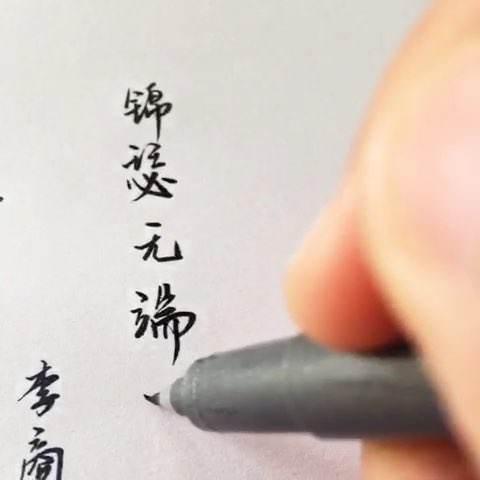 锦瑟无端
李商